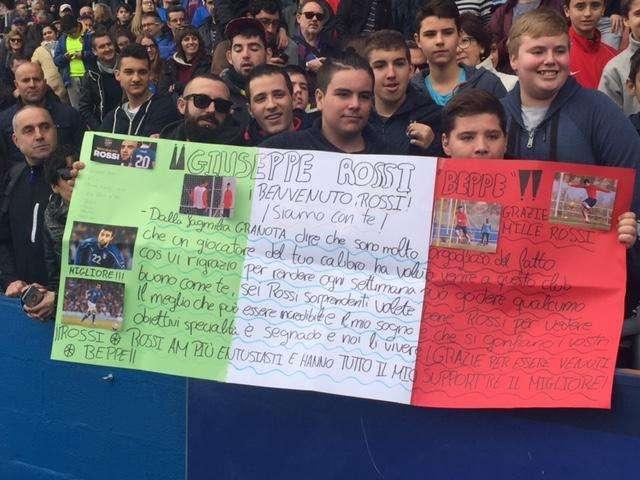 ROSSI 20
"GIUSEPPE ROSSI "BEPPE"!!
¡BENVENUTO, ROSSI!
¡Siamo con te!
GRAZIE
MILLE ROSSI
- Dalla famiglia GRANOTA dire che sono molto orgogliosa del fatto
che un giocatore del tuo calibro ha voluto venire a questo club
così vi rigrazio per rendere ogni settimana a poter godere qualcuno
buono come te, sei Rossi sorprendenti volete bene Rossi per vedere
Il meglio che può essere incredibile Il mio sogno che si gonfiano i vostri
obiettivi speciali. è segnado e noi li vivere ¡GRAZIE PER ESSERE VENUTI
ROSSI AM PIÙ ENTUSIASTI E HANNO TUTTO IL MIO SUPPORT TRE IL MIGLIORE!
22
MIGLIORE!!!
¡¡ROSSI
BEPPE!!